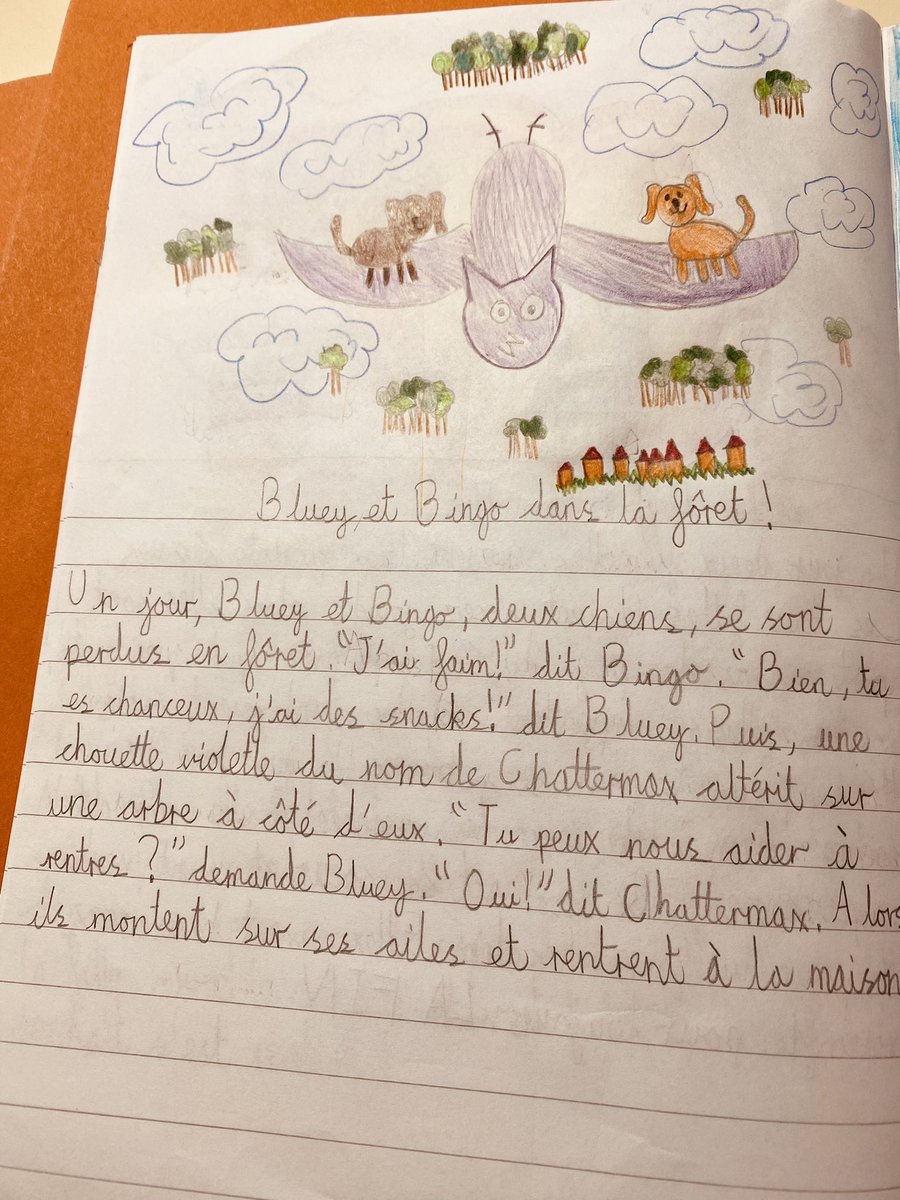 Bluey et Bingo dans la fôret !
Un jour, Bluey et Bingo, deux chiens, se sont
perdus en fôret. "J'ai faim!" dit Bingo. "Bien, tu
es chanceux, j'ai des snacks!" dit Bluey. Puis, une
chouette violette du nom de Chattermax altérit sur
une arbre à côté d'eux. "Tu peux nous aider à
rentres ?" demande Bluey. "Oui!" dit Chattermax. Alors
ils montent sur ses ailes et rentrent à la maison